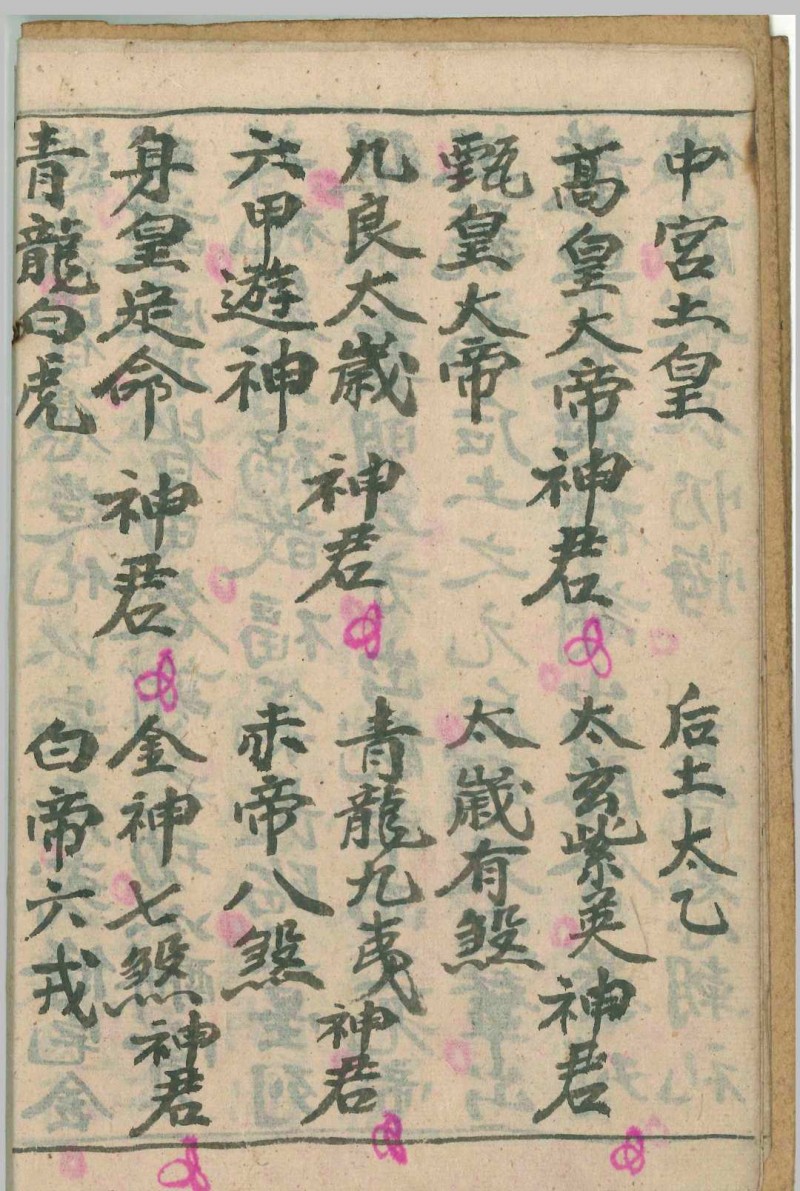 中宮土皇 后土太乙
高皇大帝神君 太玄紫英神君
甄皇大帝 太歲有煞
九良太歲神君 青龍九夷神君
六甲遊神 赤帝八煞
身皇定命神君 金神七煞神君
青龍白虎 白帝六戎